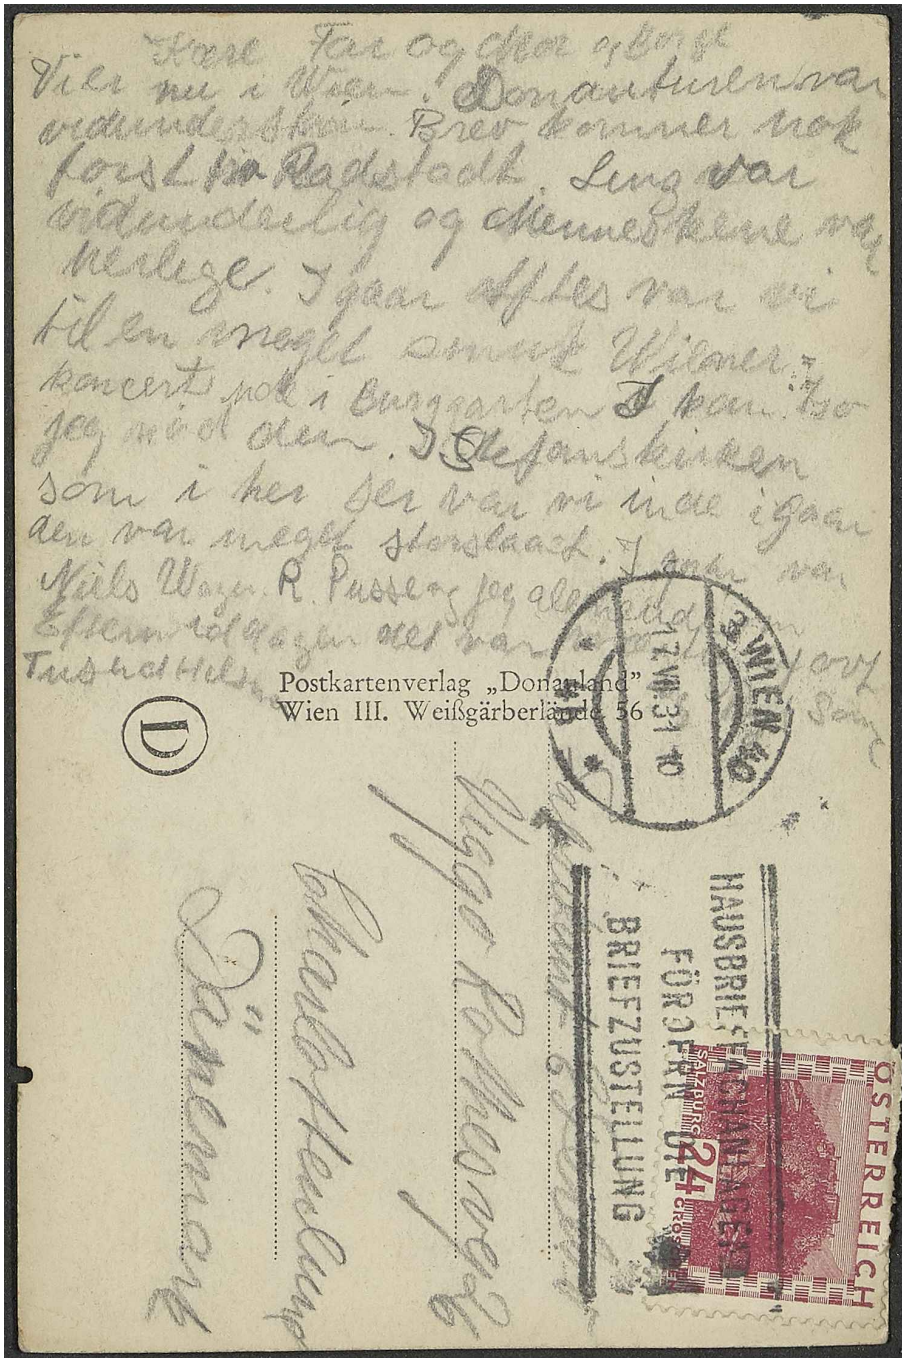 Kære Far og Mor og Børge
Vi er nu i Wien. Donauturen var
vidunderskøn. Brev kommer nok
først fra Radstadt. Linz var
vidunderlig og Menneskene var
herlige. I gaar Aftes var vi
til en meget smuk Wiener-
koncert i Burggarten I kan tro
jeg nød den. I Stefanskirken
som i her ser var vi inde i gaar
den var meget storslaaet. I gaar var
Niels R. Pusse og jeg alene
Eftermiddagen det var
Tusind Hilsner
Postkartenverlag „Donauland”
Wien III. Weißgärberlände 56
D
3 WIEN 40
17.VII.31 10
HAUSBRIEFFACHANLAGEN
FÖRDERN DIE
BRIEFZUSTELLUNG
ÖSTERREICH
SALZBURG
24
GROSCHEN
Viggo
Charlottenlund
Dänemark